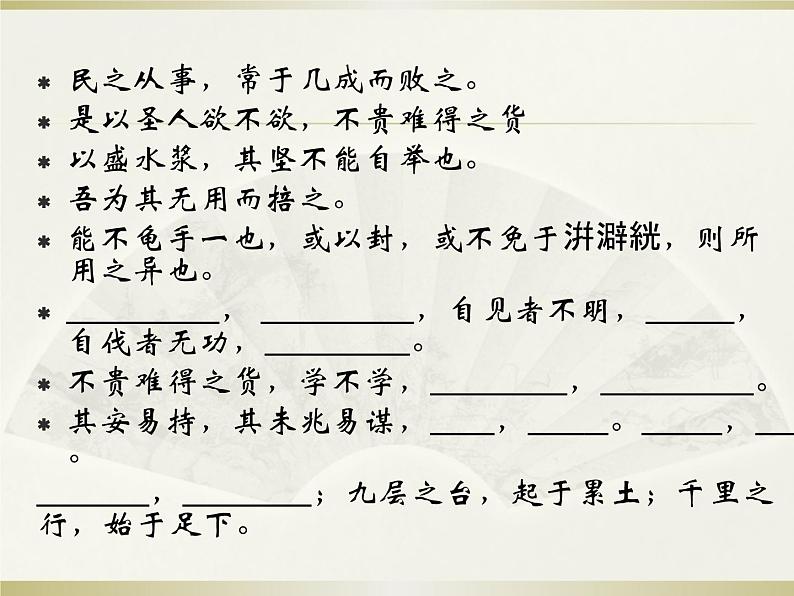 * 民之从事，常于几成而败之。
* 是以圣人欲不欲，不贵难得之货
* 以盛水浆，其坚不能自举也。
* 吾为其无用而掊之。
* 能不龟手一也，或以封，或不免于洴澼絖，则所
用之异也。
* __________，__________，自见者不明，______，
自伐者无功，__________。
* 不贵难得之货，学不学，_________，__________。
* 其安易持，其未兆易谋，____，_____。_____，___
。
_______，________；九层之台，起于累土；千里之
行，始于足下。